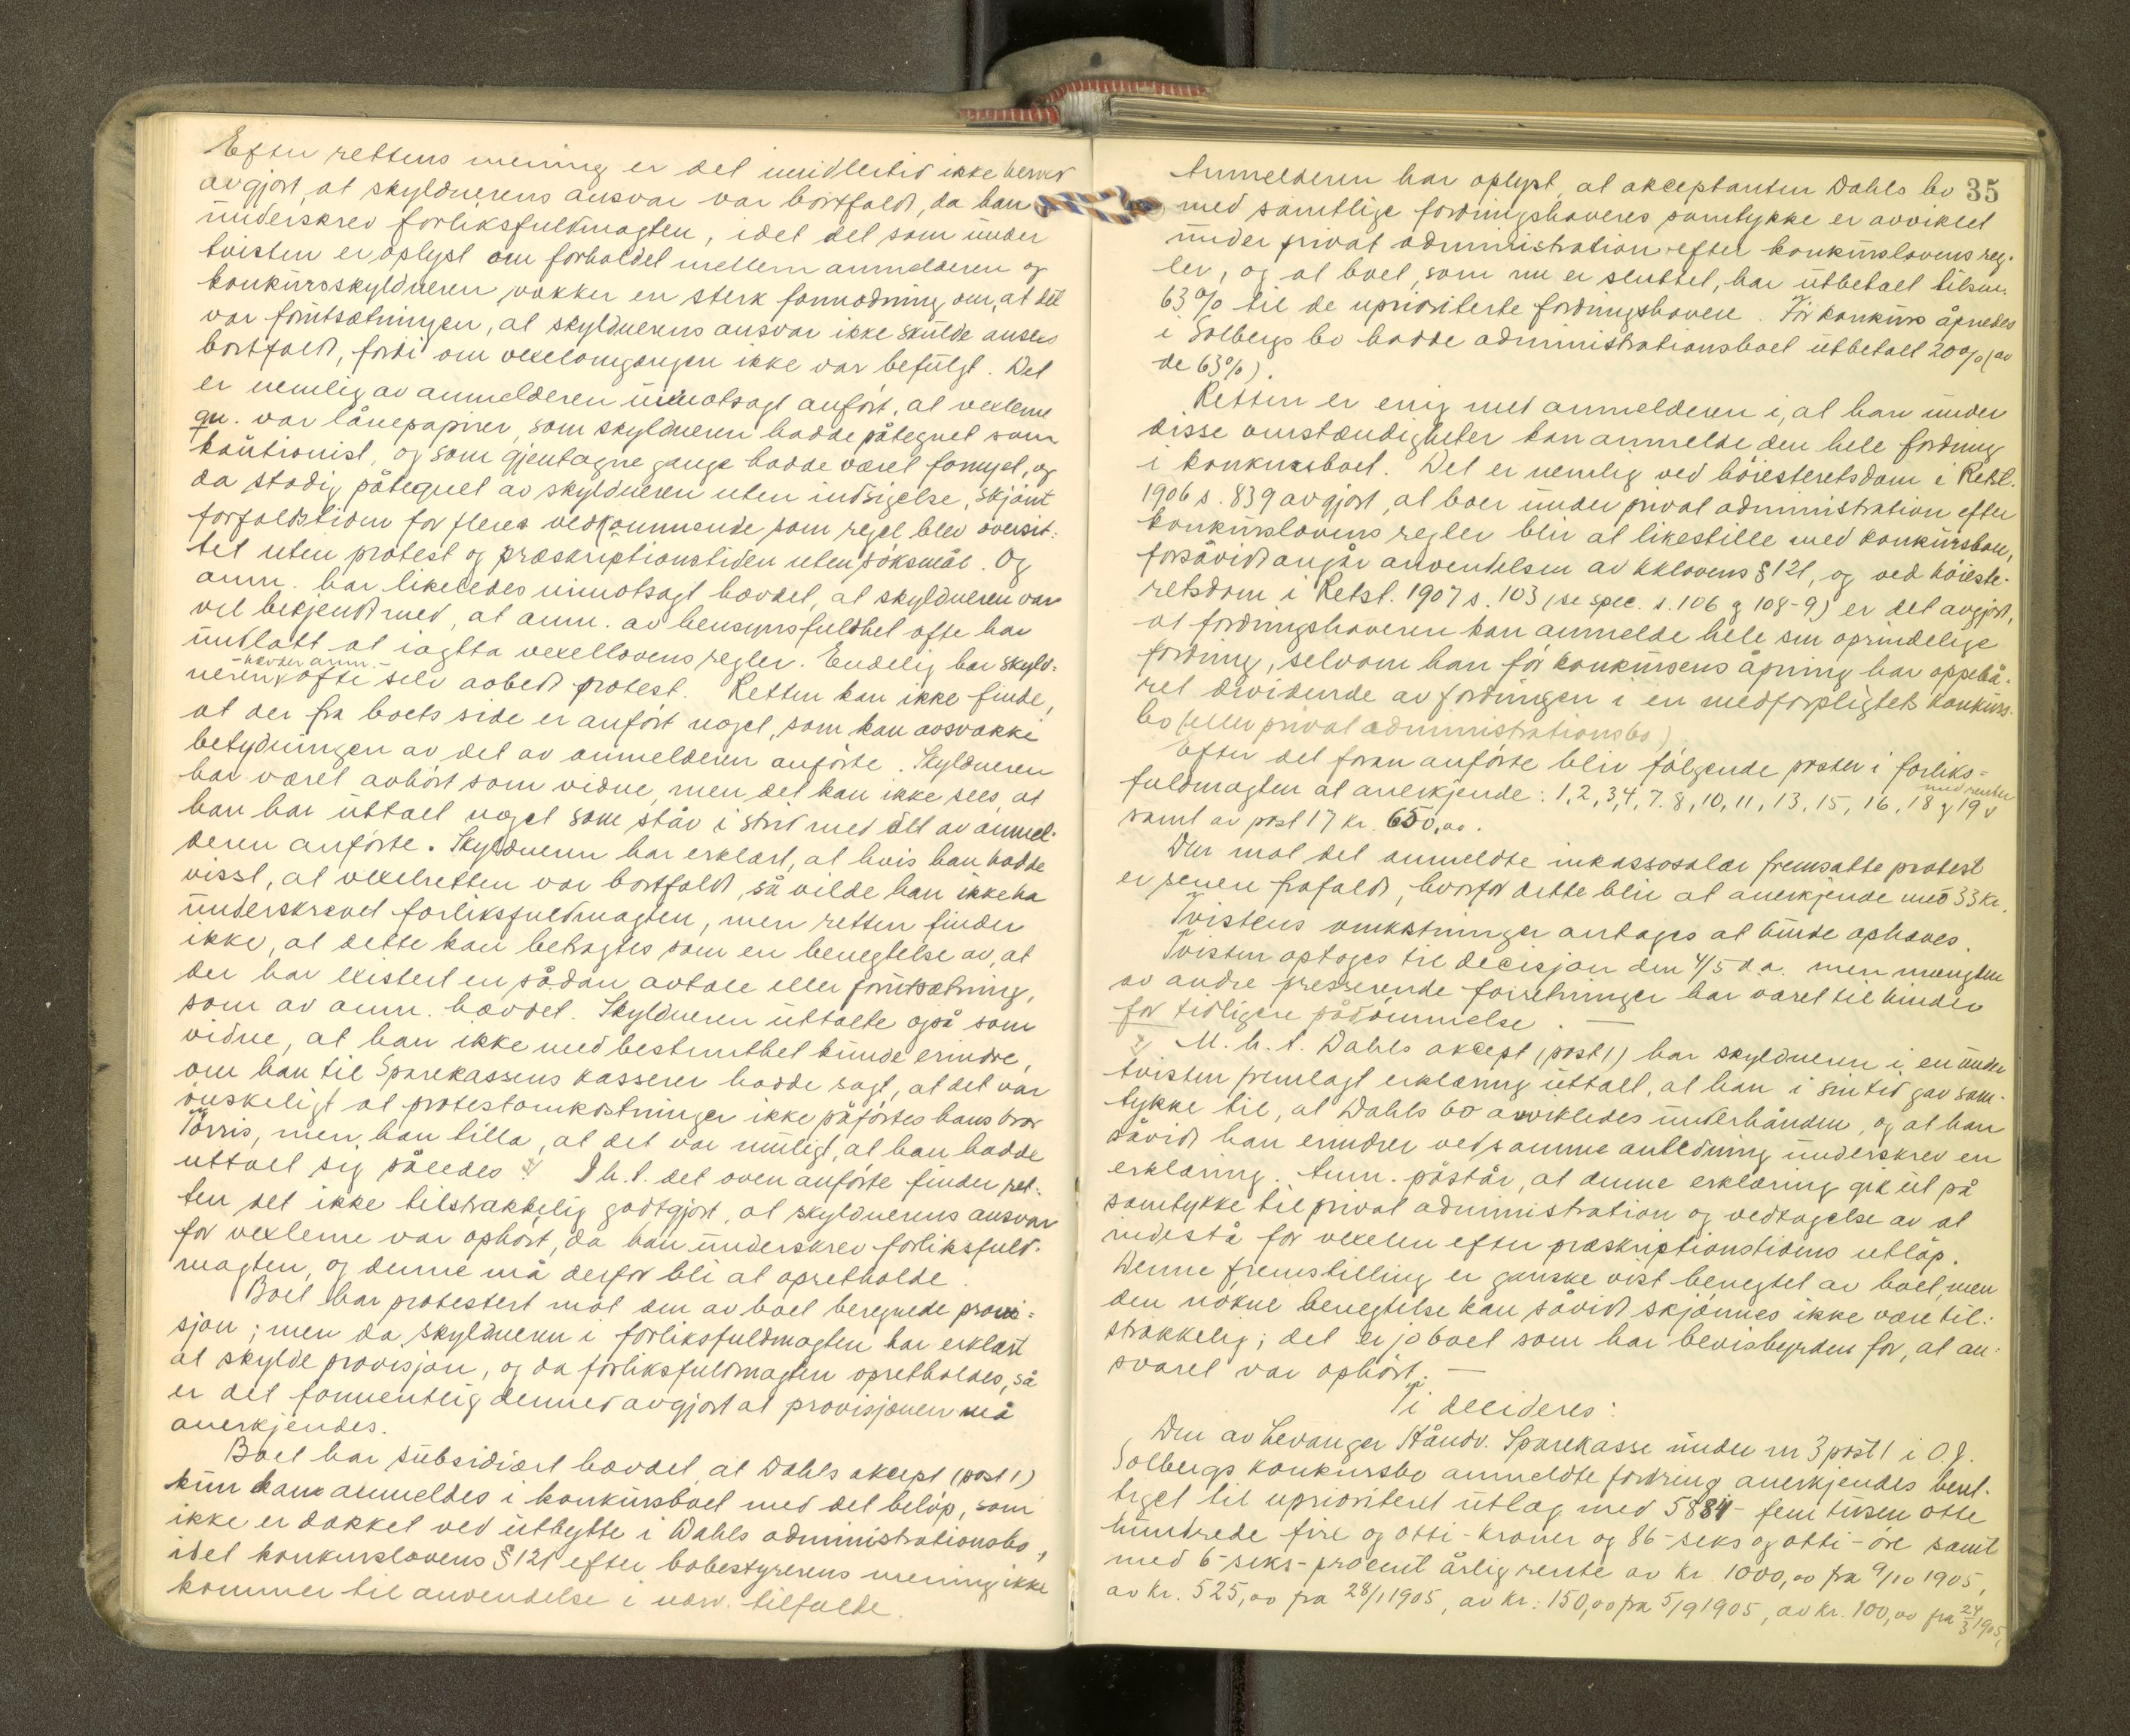 Efter rettens mening er det imidlertid ikke herved
avgjort, at skyldnerens ansvar var bortfaldt, da han
underskrev forliksfuldmagten, idet det som under
tvisten er oplyst om forholdet mellem anmelderen og
konkursskyldneren vækker en sterk formodning om, at det
var forutsætningen, at skyldnerens ansvar ikke skulde ansees
bortfaldt, fordi om vexelomgangen ikke var befulgt. Det
er nemlig av anmelderen uimotsagt anført, at vexlerne
qu. var lånepapirer, som skyldneren hadde påtegnet som
kautionist, og som gjentagne gange hadde været fornyet, og
da stadig påtegnet av skyldneren uten indsigelse, skjønt
forfaldstiden for fleres vedkommende som regel blev oversit-
tet uten protest og præskriptionstiden uten søksmål. Og
anm. har likeledes uimotsagt hævdet, at skyldneren var
vel bekjendt med, at anm. av hensynsfuldhet ofte har
undlatt at iagtta vexellovens regler. Endelig har skyld-
neren hævder anm. ofte selv avbedt protest. Retten kan ikke finde,
at der fra boets side er anført noget, som kan avsvække
betydningen av det av anmelderen anførte. Skyldneren
har været avhørt som vidne, men det kan ikke sees, at
han har uttalt noget som står i strid med det av anmel-
deren anførte. Skyldneren har erklært, at hvis han hadde
visst, at vexelretten var bortfaldt, så vilde han ikke ha
underskrevet forliksfuldmagten, men retten finder
ikke, at dette kan betragtes som en benegtelse av, at
der har existert en sådan avtale eller forutsætning,
som av anm. hævdet. Skyldneren uttalte også som
vidne, at han ikke med bestemthet kunde erindre,
om han til Sparekassens kasserer hadde sagt, at det var
ønskeligt at protestomkostninger ikke påførtes hans bror
Tørris, men han tilla, at det var muligt, at han hadde
uttalt sig således. I h. t. det oven anførte finder ret-
ten det ikke tilstrækkelig godtgjort, at skyldnerens ansvar
for vexlerne var ophørt, da han underskrev forliksfuld-
magten, og denne må derfor bli at opretholde.
Boet har protestert mot den av boet beregnede provi-
sjon; men da skyldneren i forliksfuldmagten har erklært
at skylde provisjon, og da forliksfuldmagten opretholdes, så
er det formentlig dermed avgjort at provisjonen må
anerkjendes.
Boet har subsidiært hævdet, at Dahls aksept (post 1)
kun kan anmeldes i konkursboet med det beløp, som
ikke er dækket ved utbytte i Dahls administrationsbo,
idet konkurslovens § 121 efter bobestyrerens mening ikke
kommer til anvendelse i nærv. tilfælde.
35
Anmelderen har oplyst, at akceptanten Dahls bo
med samtlige fordringshaveres samtykke er avviklet
under privat administration efter konkurslovens reg-
ler, og at boet, som nu er sluttet, har utbetalt tilsm.
63% til de uprioriterte fordringshavere. Før konkurs åpnedes
i Solbergs bo hadde administrationsboet utbetalt 20% (av
de 63%).
Retten er enig med anmelderen i, at han under
disse omstændigheter kan anmelde den hele fordring
i konkursboet. Det er nemlig ved høiesteretsdom i Retst.
1906 s. 839 avgjort, at boer under privat administration efter
konkurslovens regler blir at likestille med konkursboer,
forsåvidt angår anvendelsen av kklovens § 121, og ved høieste-
retsdom i Retst. 1907 s. 103 (se spec. s. 106 g 108-9) er det avgjort,
at fordringshaveren kan anmelde hele sin oprindelige
fordring, selvom han før konkursens åpning har oppebå-
ret dividende av fordringen i en medforpligtets konkurs-
bo (eller privat administrationsbo)
Efter det foran anførte blir følgende poster i forliks-
fuldmagten at anerkjende: 1, 2, 3, 4, 7. 8, 10, 11, 13, 15, 16, 18 g 19 med renter
samt av post 17 kr. 650,00.
Den mot det anmeldte inkassosalær fremsatte protest
er senere frafaldt, hvorfor dette blir at anerkjende med 33 kr.
Tvistens omkostninger antages at burde ophæves.
Tvisten optoges til decisjon den 4/5 d.a. men mængden
av andre presserende forretninger har været til hinder
for tidligere pådømmelse. —
M. h. t. Dahls aksept (post 1) har skyldneren i en under
tvisten fremlagt erklæring uttalt, at han i sin tid gav sam-
tykke til, at Dahls bo avvikledes underhånden, og at han
såvidt han erindrer ved samme anledning underskrev en
erklæring. Anm. påstår, at denne erklæring gik ut på
samtykke til privat administration og vedtagelse av at
indestå for vexelen efter præskriptionstidens utløp.
Denne fremstilling er ganske vist benegtet av boet, men
den nøkne benegtelse kan såvidt skjønnes ikke være til-
strækkelig; det er jo boet som har bevisbyrden for, at an-
svaret var ophørt. —
Ti decideres:
Den av Levanger Håndv. Sparekasse under nr 3 post 1 i O. J.
Solbergs konkursbo anmeldte fordring anerkjendes beret-
tiget til uprioriteret utlæg med 5884 - fem tusen otte
hundrede fire og otti - kroner og 86 - seks og otti - øre samt
med 6 - seks - procent årlig rente av kr. 1000,00 fra 9/10 1905,
av kr. 525,00 fra 28/1 1905, av kr. 150,00 fra 5/9 1905, av kr. 100,00 fra 24/3 1905,